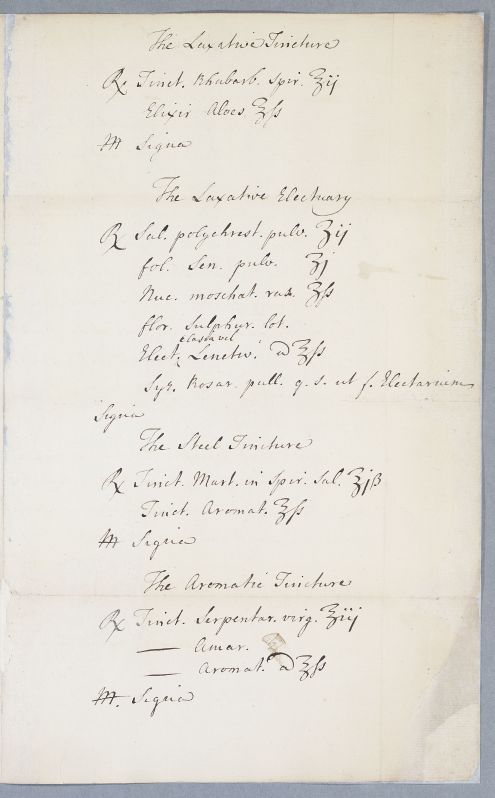 The Laxative Tincture
℞ Tinct. Rhubarb. Spir. ℥ij
Elixir Aloes ℥ſs
M Signa
The Laxative Electuary
℞ Sal. polychrest. pulv. ʒij
fol. Sen. pulv. ʒj
Nuc. moschat. ras. ʒſs
flor. Sulphur. lot.
cassia vel
Elect. Lenitiv. a ℥ſs
Syr. Rosar. pall. q. s. ut f. Electarium
Signa
The Steel Tincture
℞ Tinct. Mart. in Spir. Sal. ℥jß
Tinct. Aromat. ℥ſs
M Signa
The Aromatic Tincture
℞ Tinct. Serpentar. virg. ℥iij
— Amar.
— Aromat. a ℥ſs
M. Signa